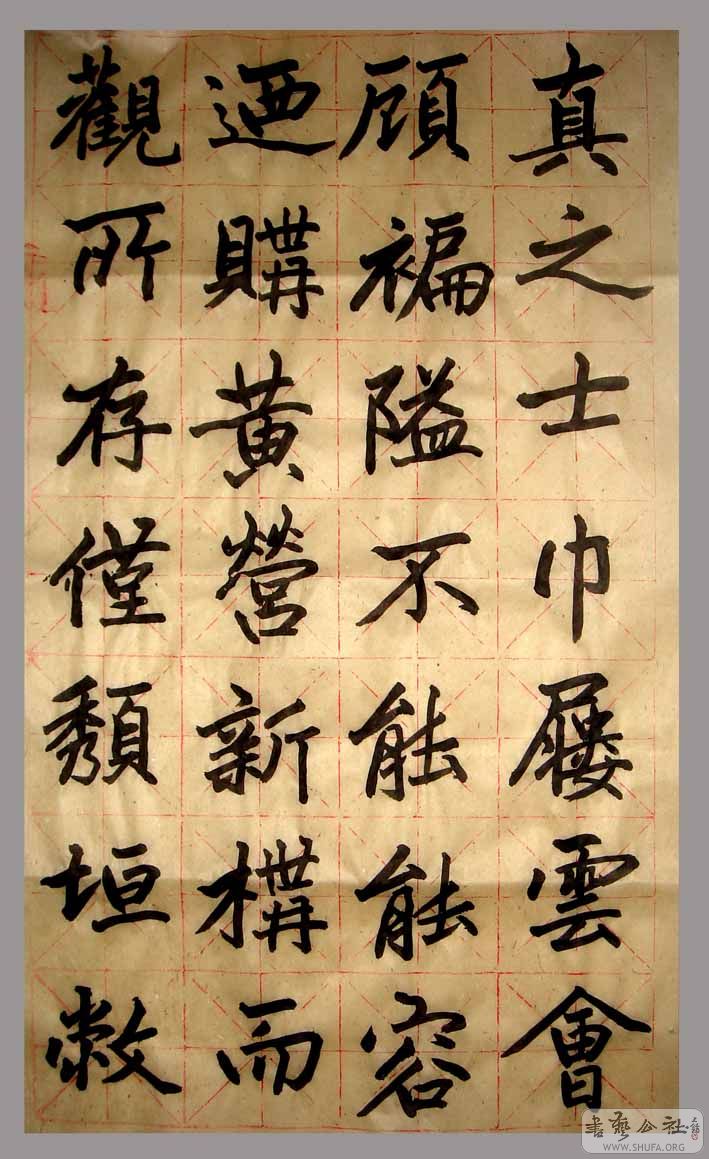 真之士巾屨雲會
顧褊隘不能能容
迺購黃營新構而
觀所存僅頽垣敝
書藝公社
WWW.SHUFA.ORG